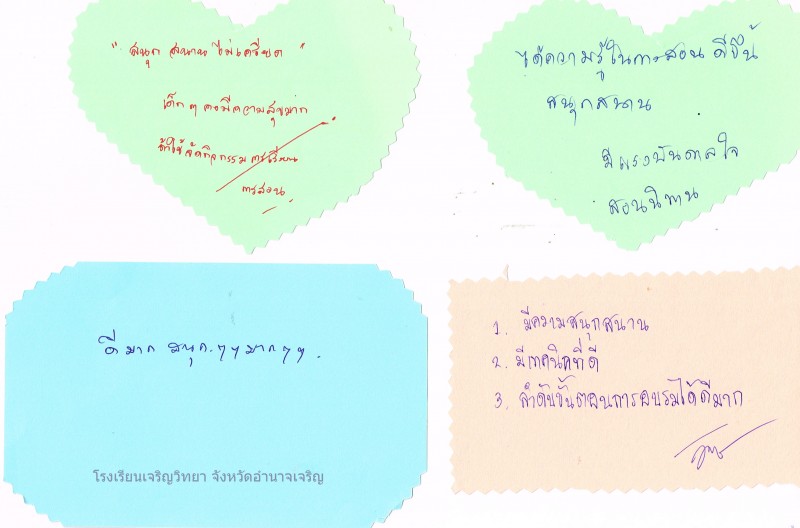 " สนุก สนาน ไม่เครียด "
เด็ก ๆ คงมีความสุขมาก
ถ้าใช้จัดกิจกรรมการเรียน
การสอน
ได้ความรู้ในการสอน ดีขึ้น
สนุกสนาน
มีแรงบันดาลใจ
สอนนิทาน
ดีมาก สนุก ๆๆ มากๆๆ.
1. มีความสนุกสนาน
2. มีเทคนิคที่ดี
3. ลำดับขั้นตอนการอบรมได้ดีมาก
โรงเรียนเจริญวิทยา จังหวัดอำนาจเจริญ